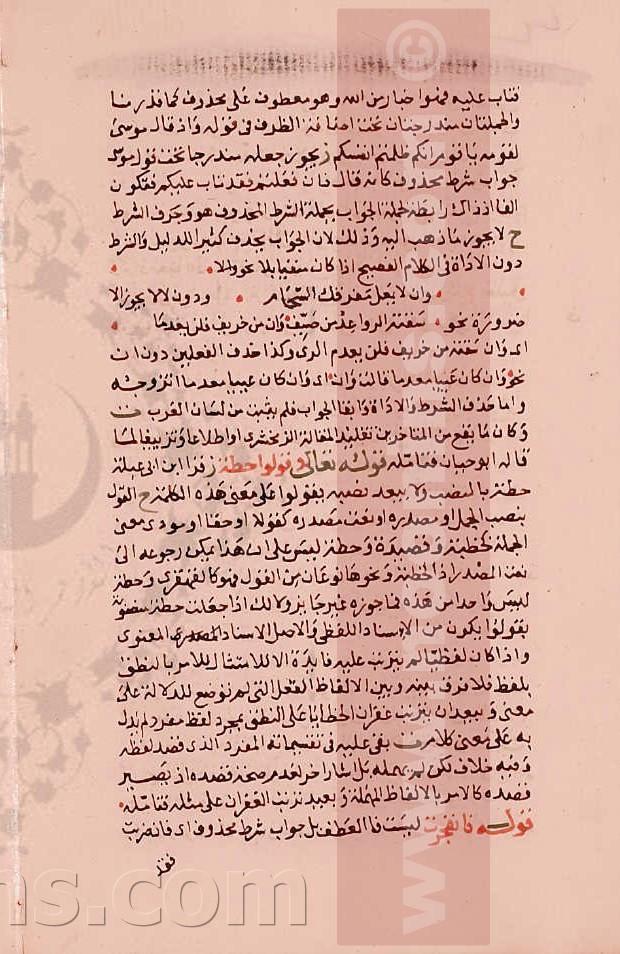 فتاب عليه فهنوا خبار من الله وهو معطوف على محذوف كما قدرنا
والجملتان مندرجتان تحت اضافة الظرف في قوله واذ قال موسى
لقومه يا قوم انكم ظلمتم انفسكم ز يجوز جعله مندرجا تحت قول موسى
جواب شرط محذوف كانه قال فان فعلتم فقد تاب عليكم فتكون
الفا اذ ذاك رابطة لجملة الجواب بجملة الشرط المحذوف هو وحرف الشرط
ح لا يجوز ما ذهب اليه وذلك لان الجواب يحذف كثيرا للدليل والشرط
دون الاداة في الكلام الفصيح اذا كان منفيا بلا نحو والا
وان لا يعل مفرقك الحسام ودون لا لا يجوز الا
ضرورة نحو سقته الرواعد من صيف وان من خريف فلن يعدما
اى وان سقته من خريف فلن يعدم الري وكذا حذف الفعلين دون ان
نحو وان كان عييا معدما قالت وان اى وان كان عييا معدما اتزوجه
واما حذف الشرط والاداة وابقا الجواب فلم يثبت من لسان العرب ف
وكان ما يقع من المتاخرين تقليد المقالة الزمخشري او اطلاعا وتزييفا لما
قاله ابو حيان فتامله قوله تعالى وقولوا حطة ز قرا ابن ابى عبلة
حطة بالنصب ولا يبعد نصبه بقولوا على معنى هذه الكلمة ح القول
ينصب الجمل او مصدره او نعت مصدره كقولا او حقا او مودى معنى
الجملة كخطبة وقصيدة وحطة ليس على ان هذا يمكن رجوعه الى
نعت المصدر اذ الخطبة ونحوها نوعان من القول فهو كالقهقرى وحطة
ليس واحدا من هذه فما جوزه غير جايز ولانك اذا جعلت حطة منصوبة
بقولوا يكون من الاسناد اللفظي والاصل الاسناد المعنوى
واذا كان لفظيا لم يترتب عليه فايدة الا للامتثال للامر بالنطق
بلفظ فلا فرق بينه وبين الالفاظ الغفل التي لم توضع للدلالة على
معنى ويبعد ان يترتب غفران الخطايا على النطق بمجرد لفظ مفرد لم يدل
به على معنى كلام ف بقى عليه في تقسيماته المفرد الذى قصد لفظه
وفيه خلاف لكن لم يهمله بل اشار اخرا لعدم صحة قصده اذ يصير
قصده كالامر بالالفاظ المهملة ويبعد ترتب الغفران على مثله فتامله
قوله فانفجرت ليست فا العطف بل جواب شرط محذوف اى فان ضربت
فقد
www.
©
ns.com